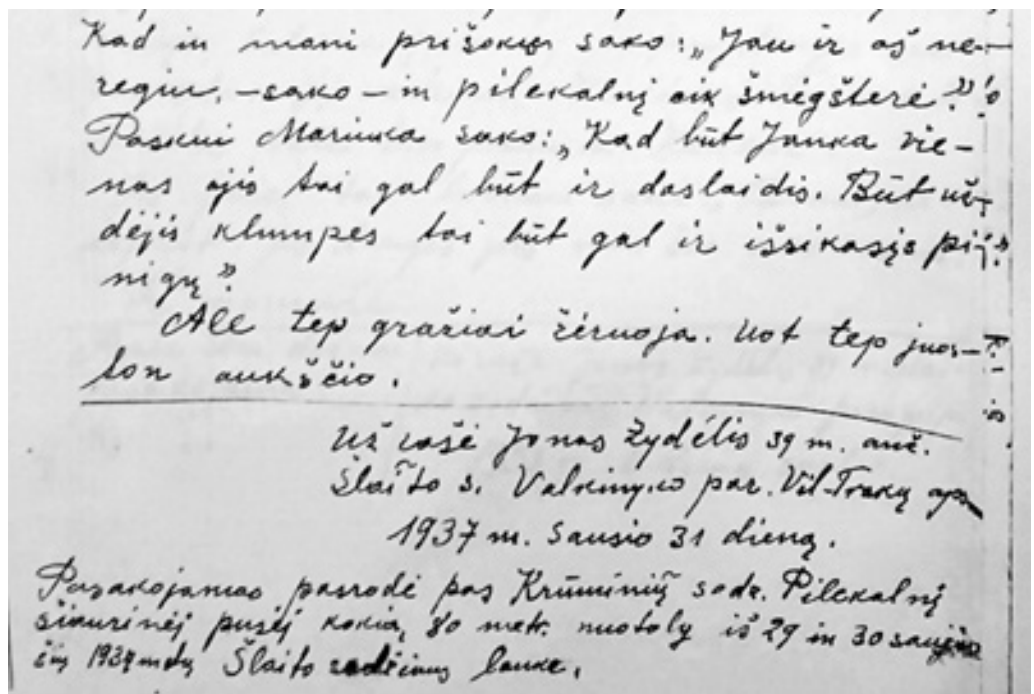 Kad in mani prišokęs sako: „Jau ir aš ne-
regiu, – sako – in pilekalnį tik šmėgšterė."
Paskui Marinka sako: „Kad būt Janka vie-
nas ajis tai gal būt ir daslaidis. Būt už-
dėjis klumpes tai būt gal ir išsikasįs pi-
nigų".
Ale tep gražiai žėruoja. Uot tep juos-
ton aukščio.
Užrašė Jonas Žydėlis 39 m. amž.
Šlaĩto s. Valkinyko par. Vil-Trakų aps
1937 m. Sausio 31 dieną.
Pasakojamas pasrodė pas Krūminių sodz. Pilekalnį
šiaurinėj pusėj kokia 80 metr. nuotoly iš 29 in 30 sausio
šių 1937 metų Šlaito sodžiaus lauke.